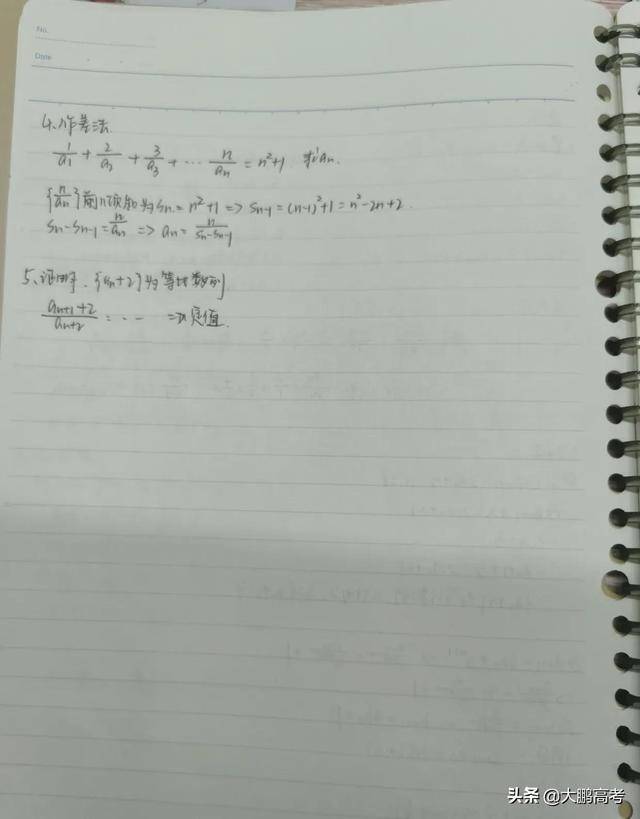 No.
Date
4、作差法
1/a₁ + 2/a₂ + 3/a₃ + … n/aₙ = n²+1 求aₙ.
{n/aₙ}前n项和为Sₙ = n²+1 => Sₙ₋₁ = (n-1)²+1 = n²-2n+2
Sₙ-Sₙ₋₁ = n/aₙ => aₙ = n/(Sₙ-Sₙ₋₁)
5、证明、{aₙ+2}为等比数列
(aₙ₊₁+2)/(aₙ+2) = … => 定值.
头条 @大鹏高考